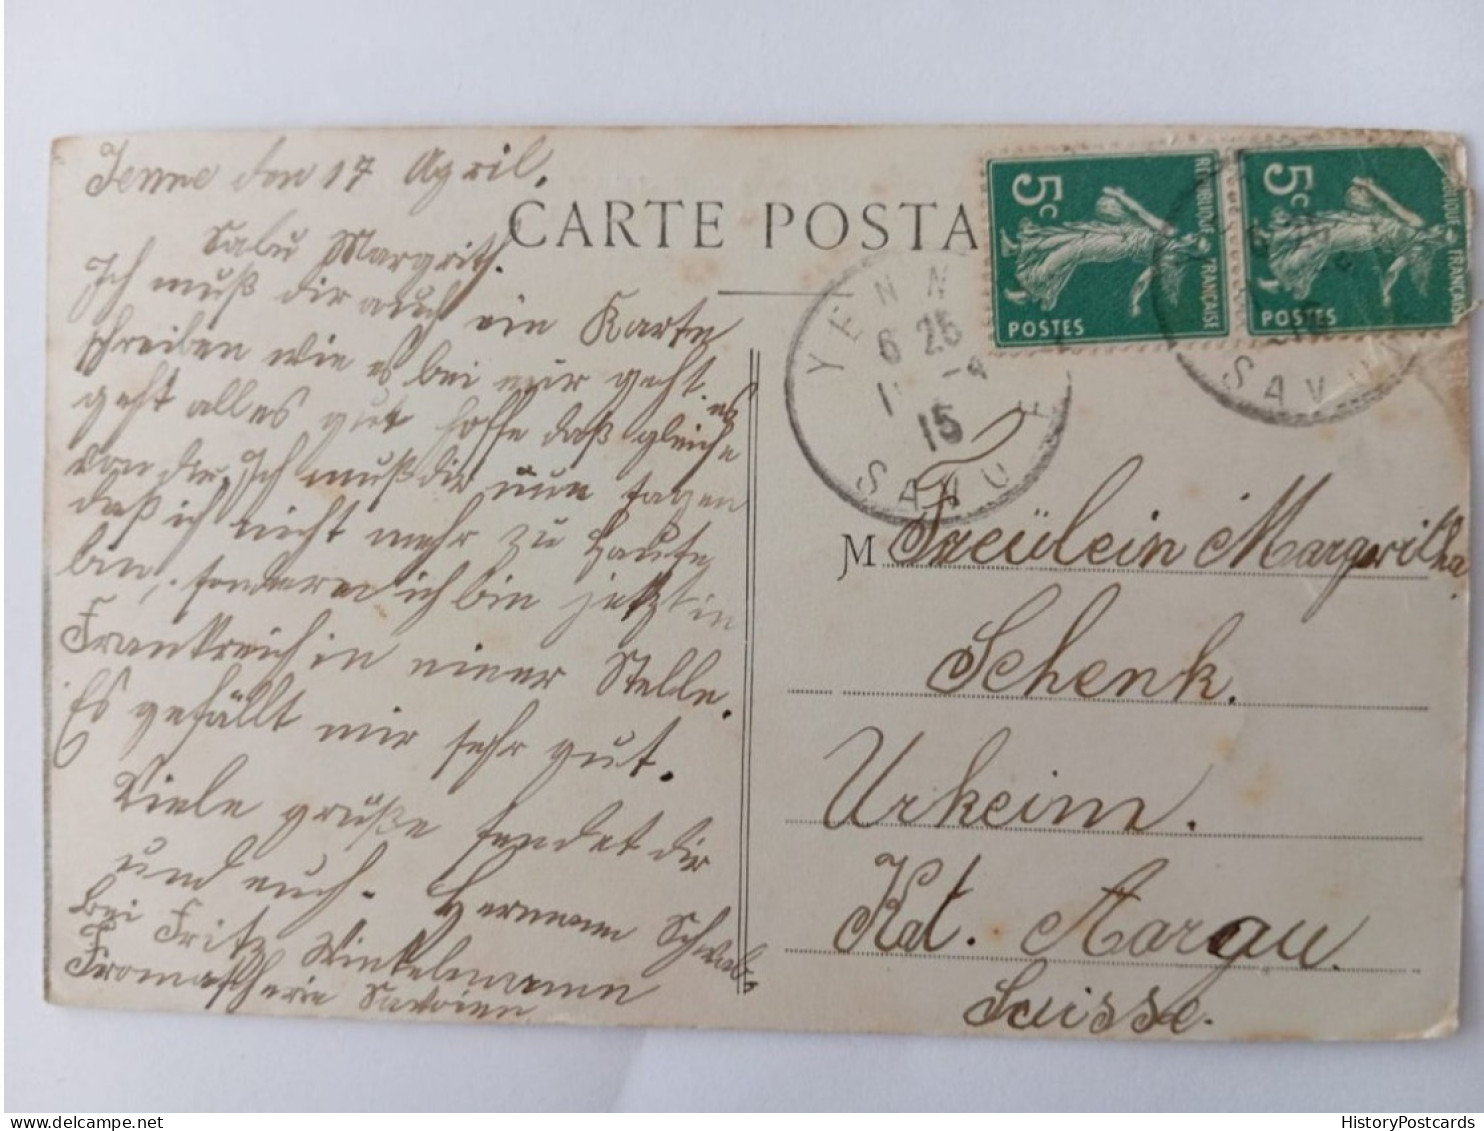 Jenne den 17 April.
CARTE POSTA
Margrith.
Ich muß dir auch ein Karte
schreiben wie es bei mir geht. es
geht alles gut hoffe daß gleiche
von dir. Ich muß dir nun sagen
daß ich nicht mehr zu Hause
bin, sonderen ich bin jetzt in
Frankreich in einer Stelle.
Es gefällt mir sehr gut.
Viele grüße sendet dir
und euch. Hermann Schwab.
bei Fritz Winkelmann
Savoien
5c
POSTES
REPUBLIQUE FRANÇAISE
5c
POSTES
YENN
6 25
15
SAVOIE
SAVO
M Freülein Margaritha
Schenk.
Urkeim.
Kt. Aargau.
Suisse.
HistoryPostcards.com